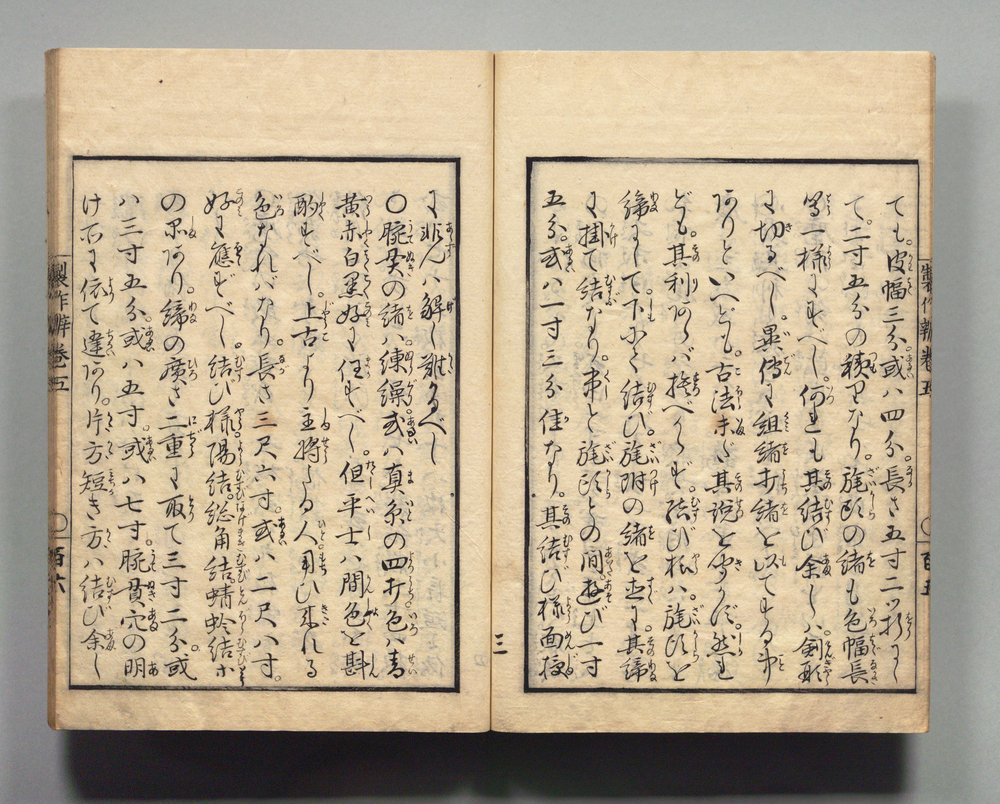 製作辨卷五
百五
ても。皮幅三分。或ハ四分。長さ五寸二ッ折にし
て。二寸五分の積りなり。旄頭の緒も色幅長
等一様にすべし。何れも其結び余しハ剣形
に切るべし。異傳に組緒打緒を以てする事
ありといへども。古法未だ其説を聞かず。然れ
ども。其利あらバ捨べからず。結び様ハ。旄頭を
締にして下にて結び。旄附の緒を直に其締
に掛て結なり。串と旄頭との間。遊び一寸
五分。或ハ一寸三分佳なり。其結び様面授
三
に非んハ解し難かるべし
〇腕貫の緒ハ練繰或ハ真糸の四打色ハ青
黄赤白黒好に任すべし。但平士ハ間色を斟
酌すべし。上古より主将たる人用ひ来れる
色なれバなり。長さ三尺六寸。或ハ二尺八寸。
好に應ずべし。結び様陽結。総角結。蜻蛉結ホ
の品あり。締の席さ二重に取て三寸二分。或
ハ三寸五分。或ハ五寸。或ハ七寸。腕貫穴の明
け所に依て違あり。片方短き方ハ結び余し
製作辨卷五
百六